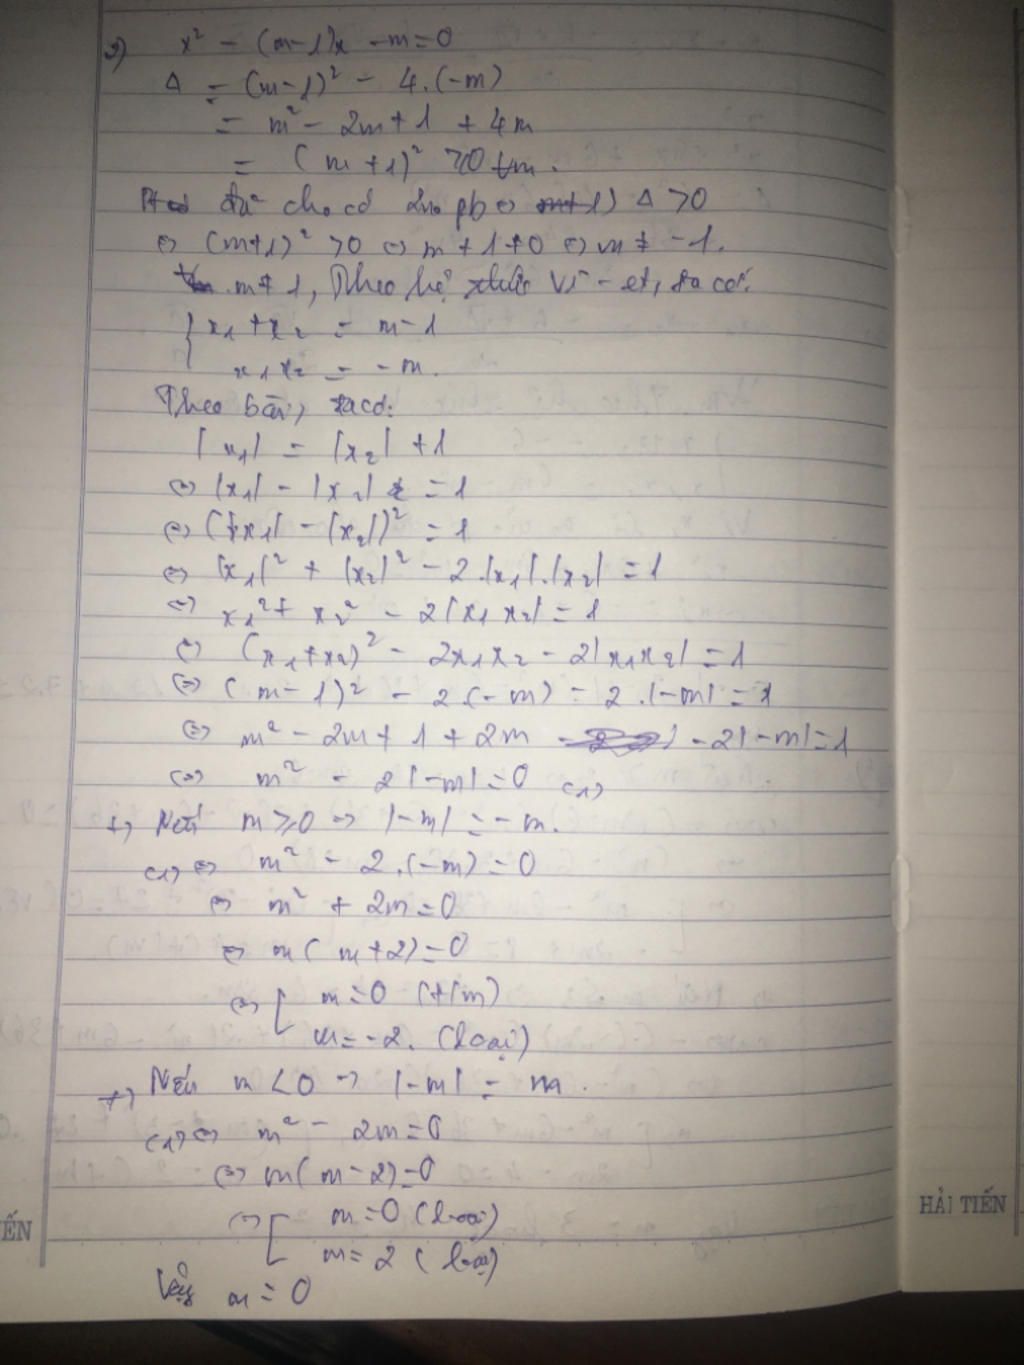 x² - (m-1)x - m = 0
Δ = (m-1)² - 4.(-m)
= m² - 2m + 1 + 4m
= (m+1)² ≥ 0 ∀m.
đã cho có 2 no pb ⇔ Δ > 0
⇔ (m+1)² > 0 ⇔ m + 1 ≠ 0 ⇔ m ≠ -1.
m ≠ 1, Theo hệ thức Vi-et, ta có:
{ x₁ + x₂ = m - 1
x₁x₂ = -m.
Theo bài, ta có:
|x₁| = |x₂| + 1
⇔ |x₁| - |x₂| = 1
⇔ (|x₁| - |x₂|)² = 1
⇔ |x₁|² + |x₂|² - 2.|x₁|.|x₂| = 1
⇔ x₁² + x₂² - 2|x₁x₂| = 1
⇔ (x₁+x₂)² - 2x₁x₂ - 2|x₁x₂| = 1
⇔ (m-1)² - 2.(-m) - 2.|-m| = 1
⇔ m² - 2m + 1 + 2m - 2|-m| = 1
⇔ m² - 2|-m| = 0 (1)
+) Nếu m ≥ 0 → |-m| = -m.
(1) ⇔ m² - 2.(-m) = 0
⇔ m² + 2m = 0
⇔ m(m+2) = 0
⇔ [ m = 0 (t/m)
m = -2. (loại)
+) Nếu m < 0 → |-m| = m.
(1) ⇔ m² - 2m = 0
⇔ m(m-2) = 0
⇔ [ m = 0 (loại)
m = 2 (loại)
Vậy m = 0
ẾN
HẢI TIẾN